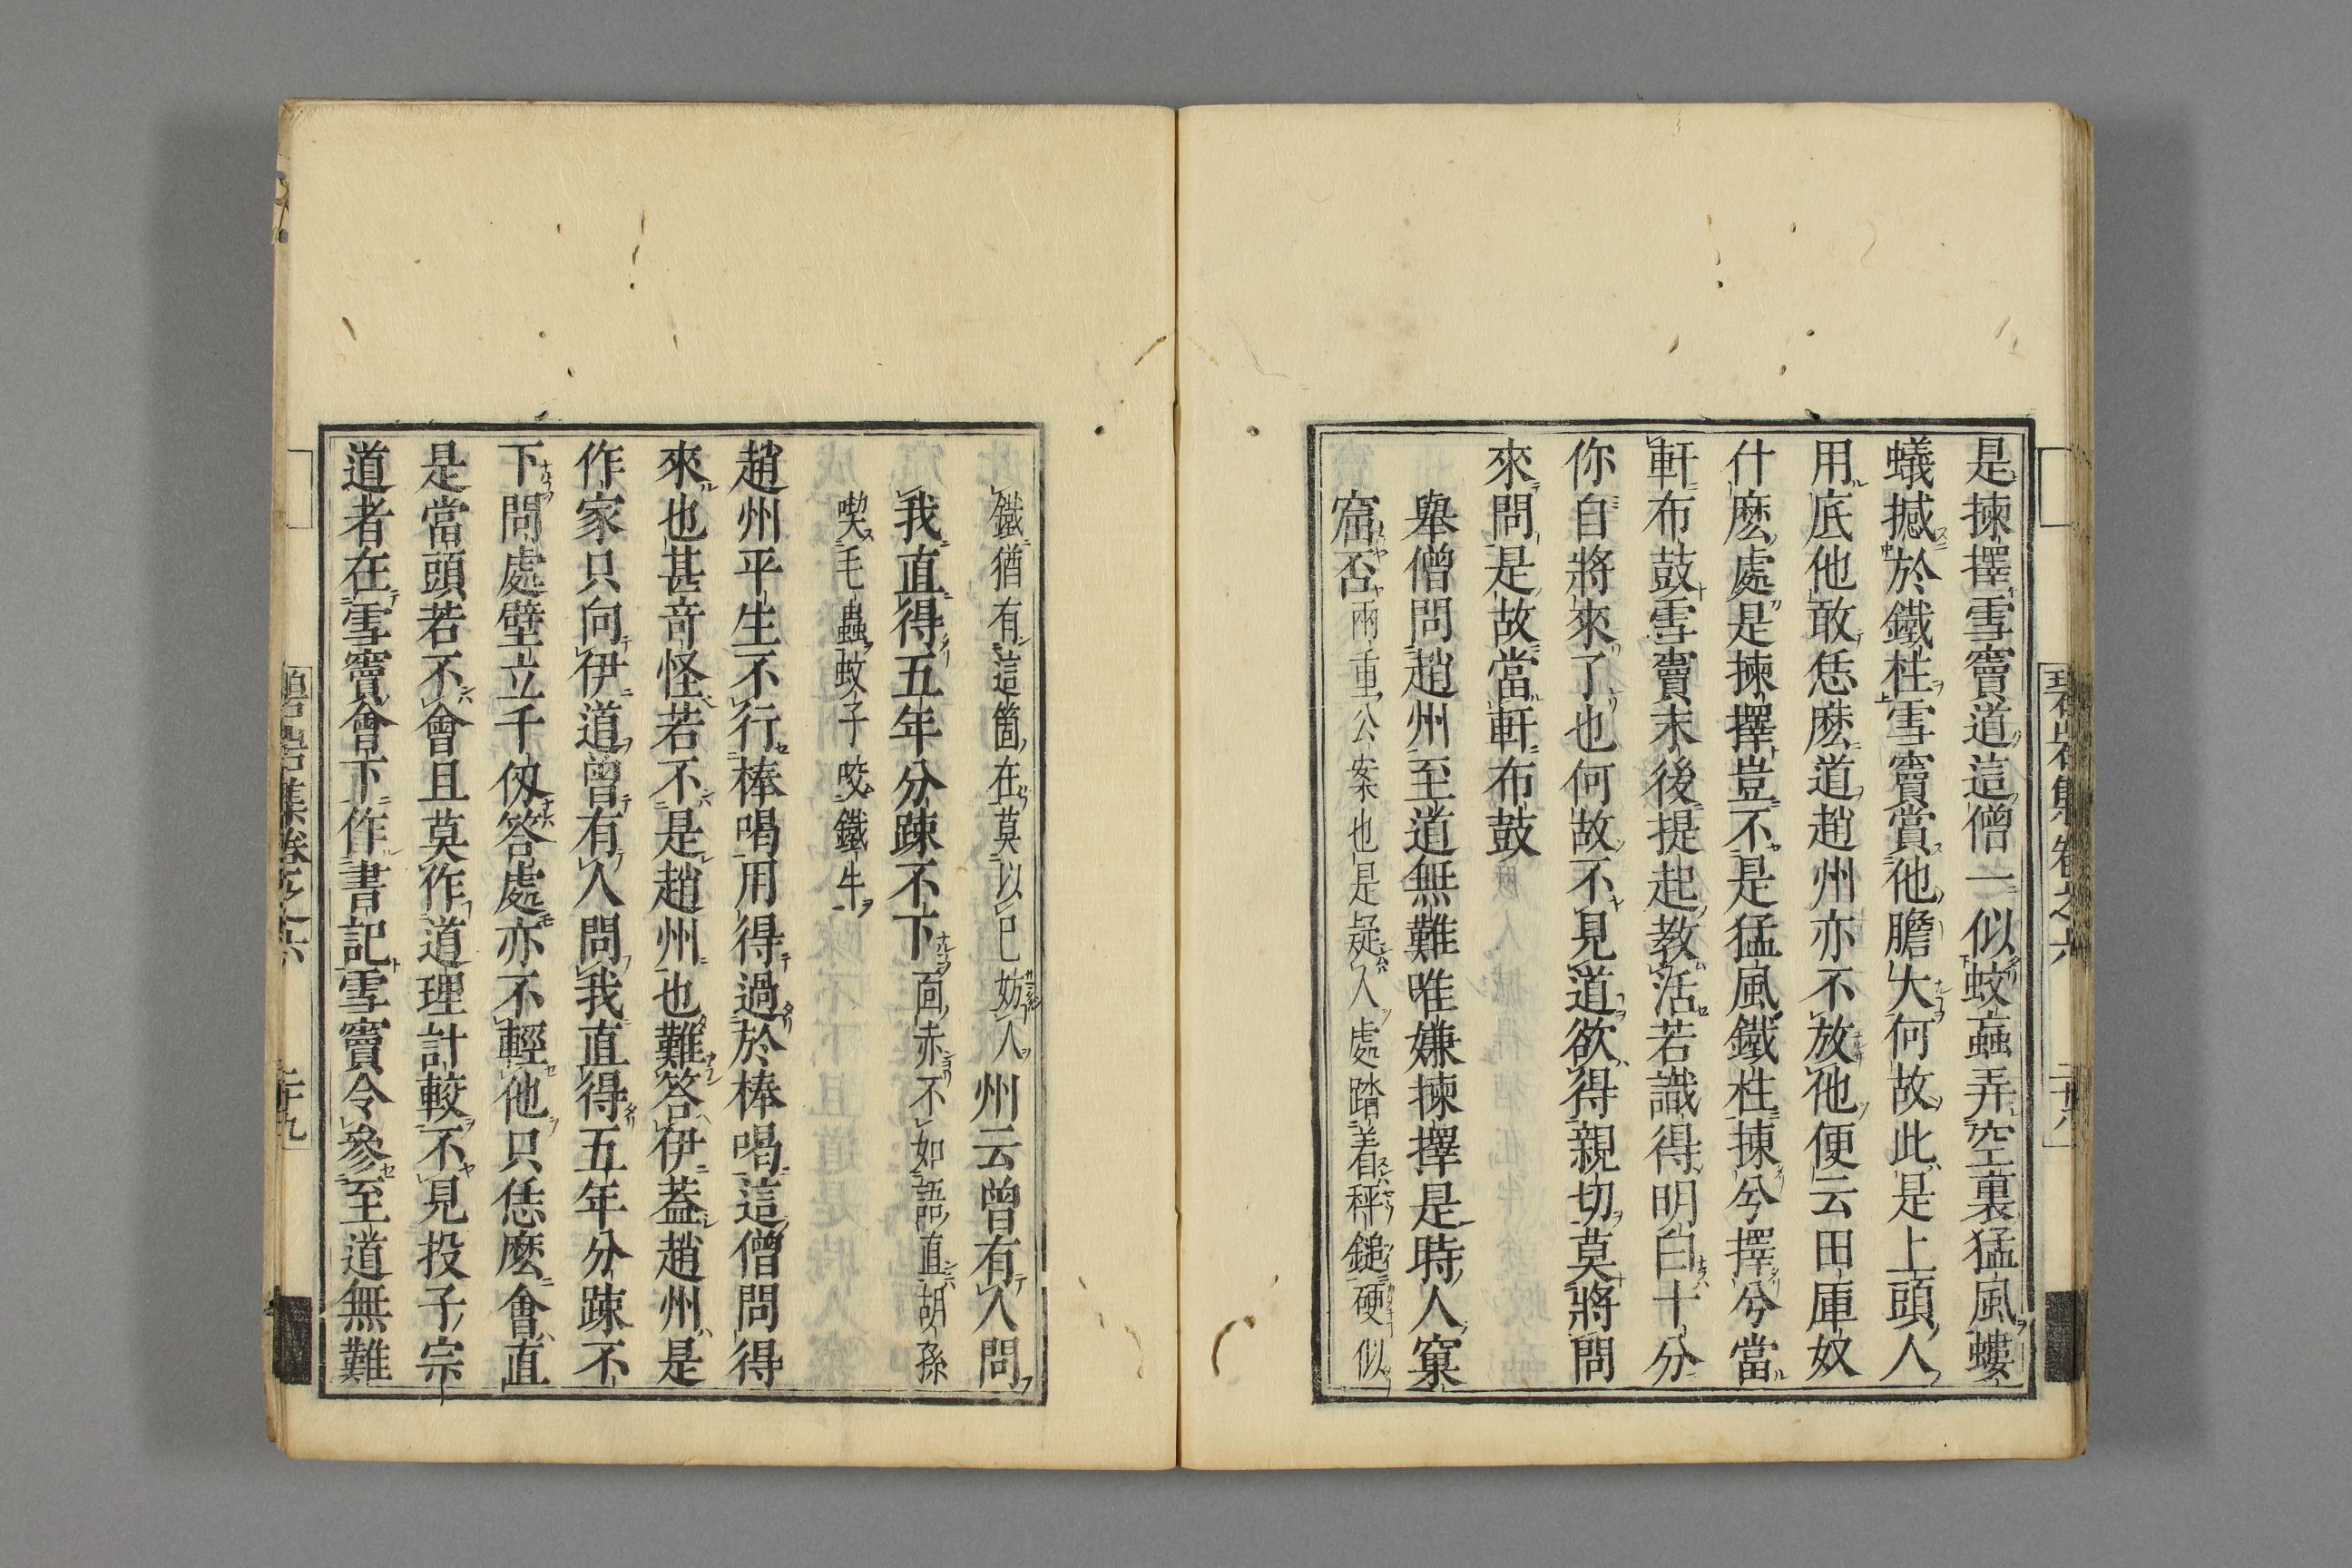 是揀擇雪竇道這僧一似蚊蝱弄空裏猛風螻
蟻撼於鐵柱雪竇賞他膽大何故此是上頭人
用底他敢恁麽道趙州亦不放他便云田厙奴
什麽處是揀擇豈不是猛風鐵柱揀兮擇兮當
軒布鼓雪竇末後提起教活若識得明白十分
你自將來了也何故不見道欲得親切莫將問
來問是故當軒布鼓
舉僧問趙州至道無難唯嫌揀擇是時人窠
窟否兩重公案也是疑人處踏着秤鎚硬似
鐵猶有這箇在莫以己妨人州云曾有人問
我直得五年分踈不下面赤不如語直胡孫
喫毛蟲蚊子咬鐵牛
趙州平生不行棒喝用得過於棒喝這僧問得
來也甚竒怪若不是趙州也難答伊葢趙州是
作家只向伊道曾有人問我直得五年分踈不
下問處壁立千仭答處亦不輕他只恁麽會直
是當頭若不會且莫作道理計較不見投子宗
道者在雪竇會下作書記雪竇令參至道無難
碧岩集卷之六
二十九